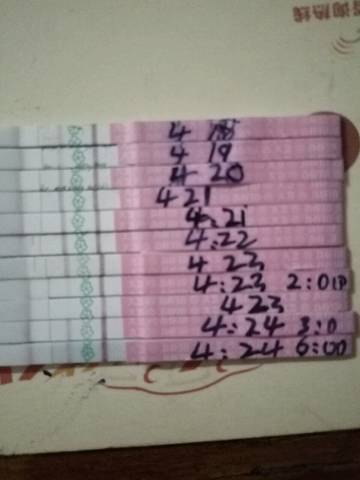 咨询热线
4 18
4 19
4 20
4 21
4.21
4.22
4 23
4:23 2:00
4 23
4:24 3:0
4:24 6:00